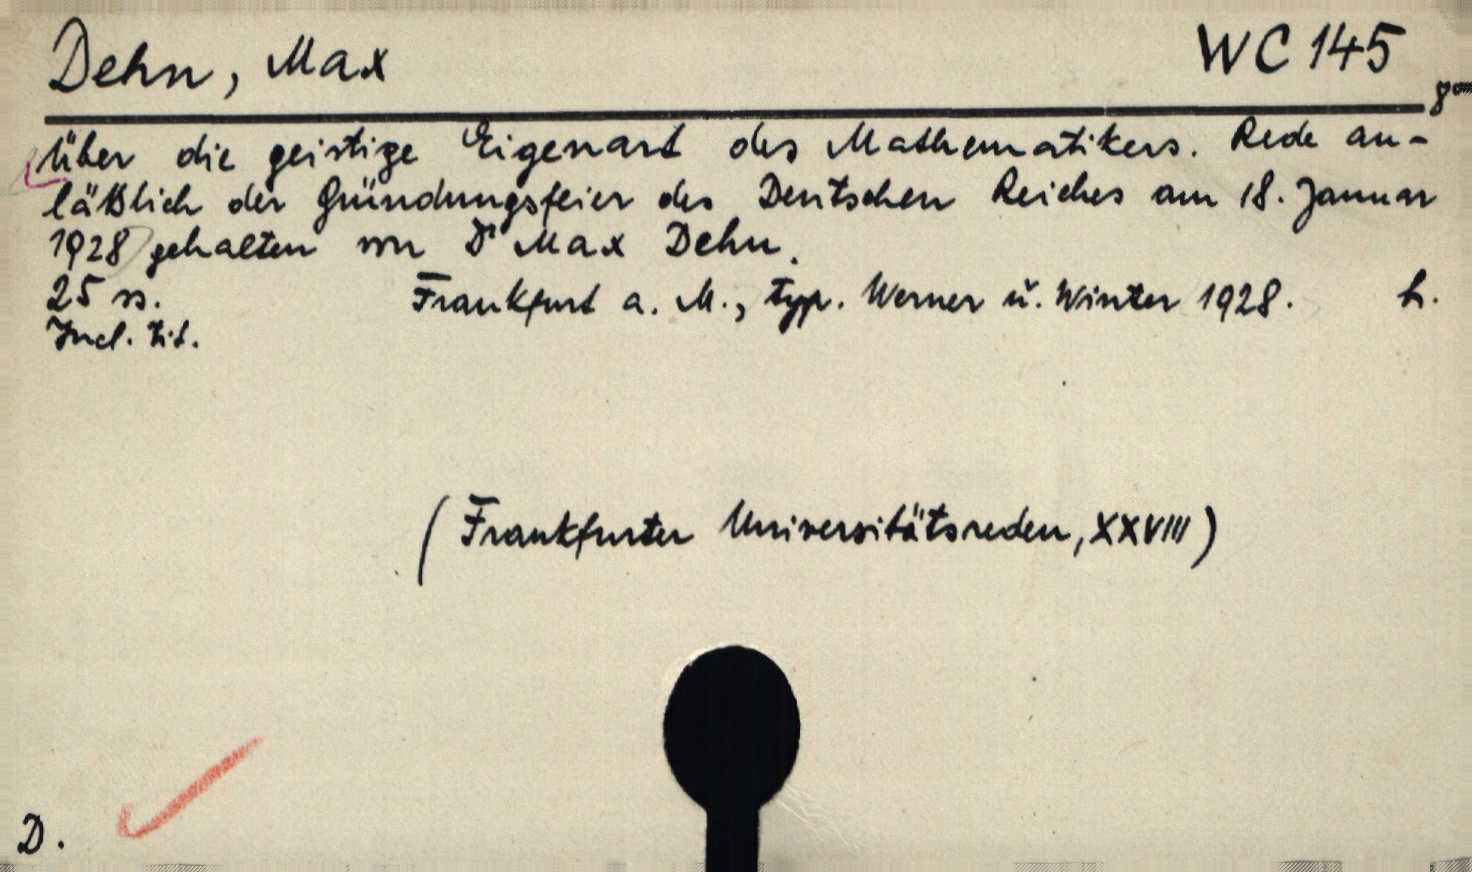 Dehn, Max
WC 145
8°
Über die geistige Eigenart des Mathematikers. Rede an-
läßlich der Gründungsfeier des Deutschen Reiches am 18. Januar
1928 gehalten von Dr Max Dehn.
25 ss. Frankfurt a. M., typ. Werner u. Winter 1928. h.
Incl. tit.
(Frankfurter Universitätsreden, XXVIII)
D.